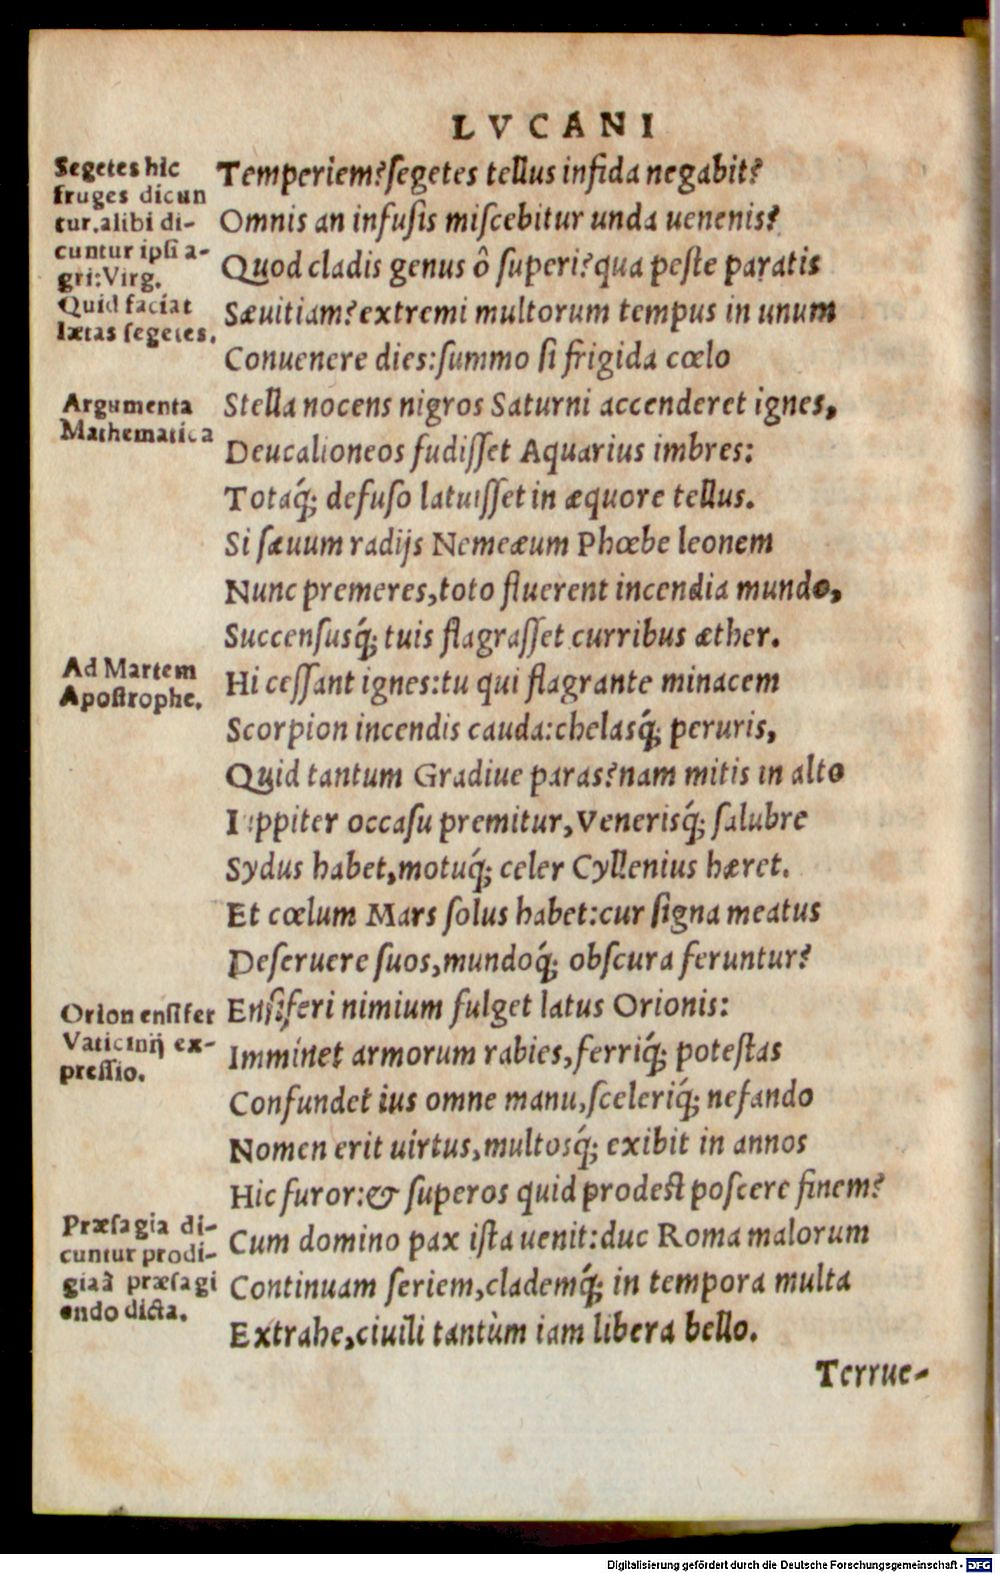 LVCANI
Segetes hic
fruges dicun
tur.alibi di-
cuntur ipsi a-
gri:Virg.
Quid faciat
lætas segetes.
Temperiem?segetes tellus infida negabit?
Omnis an infusis miscebitur unda uenenis?
Quod cladis genus ô superi?qua peste paratis
Sæuitiam?extremi multorum tempus in unum
Conuenere dies:summo si frigida cœlo
Argumenta
Mathematica
Stella nocens nigros Saturni accenderet ignes,
Deucalioneos fudisset Aquarius imbres:
Totaq́; defuso latuisset in æquore tellus.
Si sæuum radijs Nemeæum Phœbe leonem
Nunc premeres,toto fluerent incendia mundo,
Succensusq́; tuis flagrasset curribus æther.
Ad Martem
Apostrophe.
Hi cessant ignes:tu qui flagrante minacem
Scorpion incendis cauda:chelasq́; peruris,
Quid tantum Gradiue paras?nam mitis in alto
Iuppiter occasu premitur,Venerisq́; salubre
Sydus habet,motuq́; celer Cyllenius hæret.
Et cœlum Mars solus habet:cur signa meatus
Deseruere suos,mundoq́; obscura feruntur?
Orion ensifer
Vaticinij ex-
pressio.
Ensiferi nimium fulget latus Orionis:
Imminet armorum rabies,ferriq́; potestas
Confundet ius omne manu,sceleriq́; nefando
Nomen erit uirtus,multosq́; exibit in annos
Hic furor:& superos quid prodest poscere finem?
Præsagia di-
cuntur prodi-
giaà præsagi
endo dicta.
Cum domino pax ista uenit:duc Roma malorum
Continuam seriem,clademq́; in tempora multa
Extrahe,ciuili tantùm iam libera bello.
Terrue-
Digitalisierung gefördert durch die Deutsche Forschungsgemeinschaft - DFG